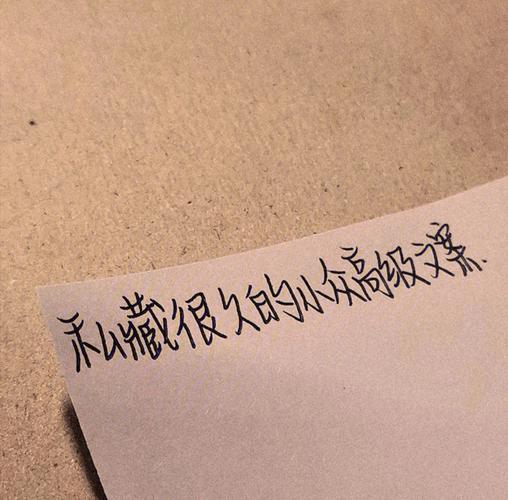 私藏很久的小众高级文案.